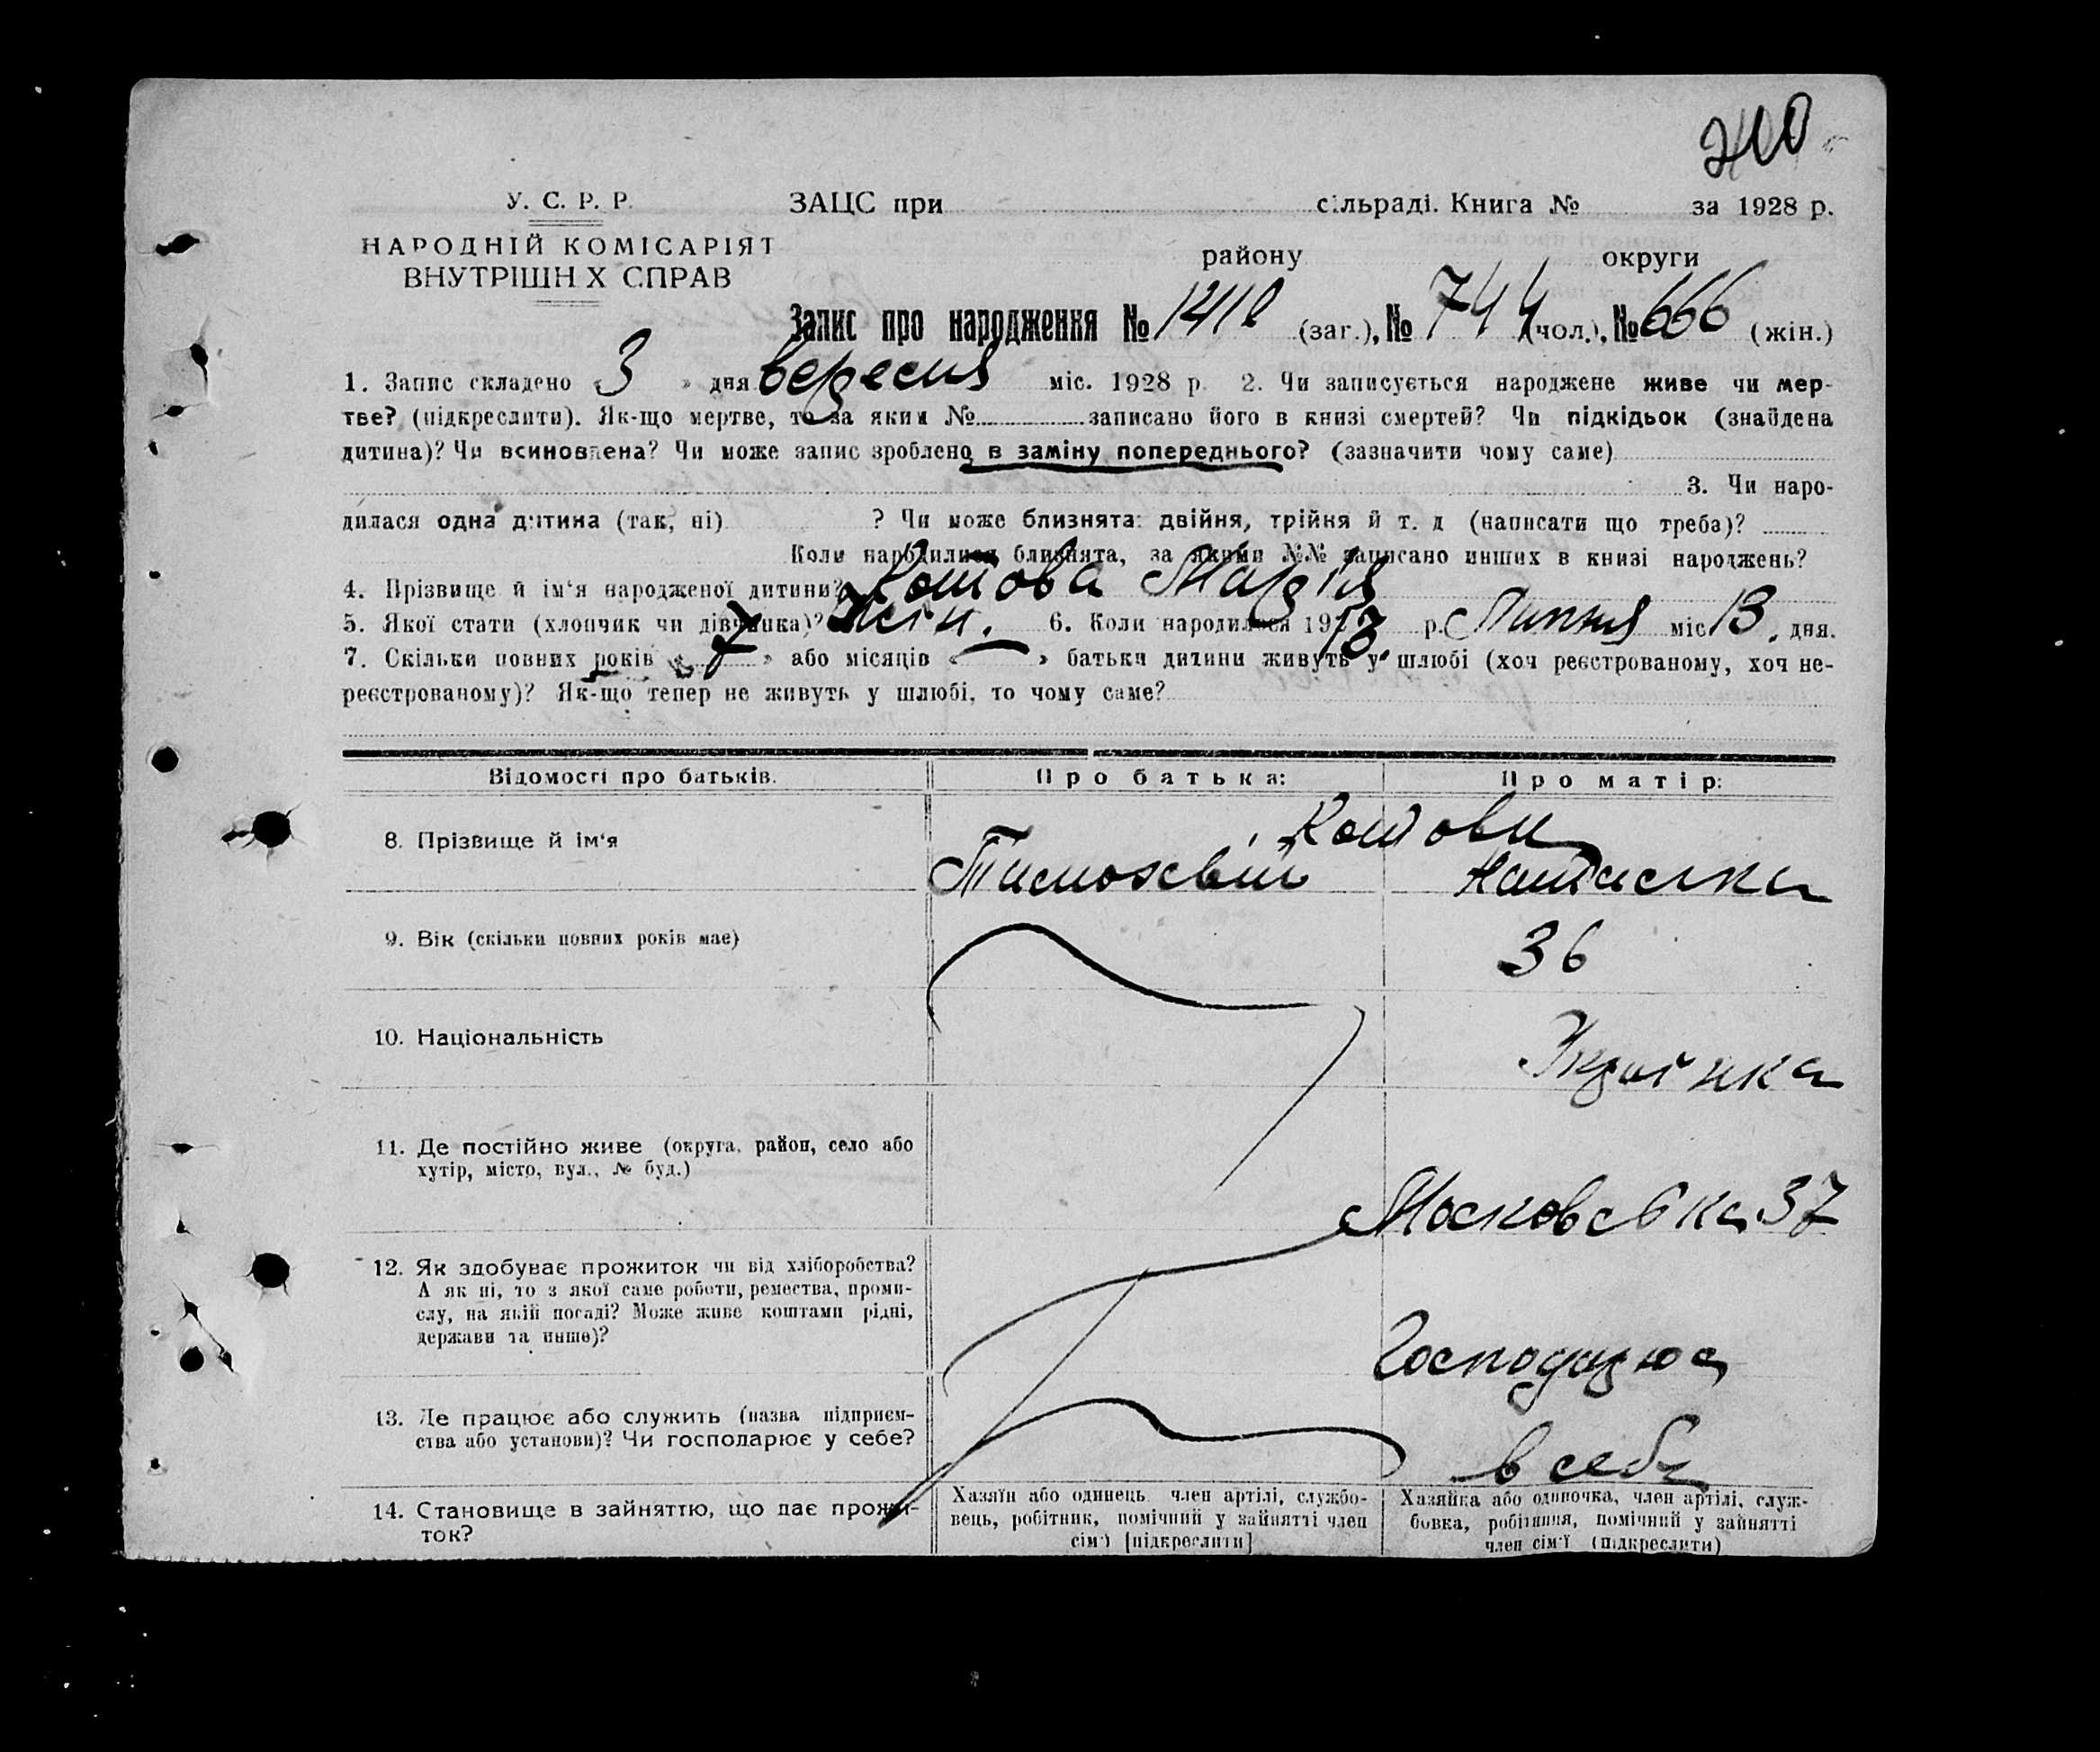 У. С. Р. Р. ЗАЦС при сільраді. Книга № за 1928 р.
НАРОДНІЙ КОМІСАРІЯТ
ВНУТРІШН Х СПРАВ
району округи
Запис про народження № (заг.), № 744 (чол.), № 666 (жін.)
1. Запис складено « 3 » дня вересня міс. 1928 р. 2. Чи записується народжене живе чи мер-
тве? (підкреслити). Як-що мертве, то за яким № записано його в книзі смертей? Чи підкідьок (знайдена
дитина)? Чи всиновлена? Чи може запис зроблено в заміну попереднього? (зазначити чому саме)
3. Чи наро-
дилася одна дитина (так, ні) ? Чи може близнята: двійня, трійня й т. д (написати що треба)?
Коли народилися близнята, за якими №№ записано инших в книзі народжень?
4. Прізвище й ім‘я народженої дитини? Котова Марія
5. Якої стати (хлопчик чи дівчинка)? жін. 6. Коли народилося 19 р. Липня міс. 13. дня.
7. Скільки повних років « 7 » або місяців « — » батьки дитини живуть у шлюбі (хоч реєстрованому, хоч не-
реєстрованому)? Як-що тепер не живуть у шлюбі, то чому саме?
Відомості про батьків. Про батька: Про матір:
8. Прізвище й ім‘я Котови
Тимохвій
9. Вік (скільки повних років має) 36
10. Національність
11. Де постійно живе (округа, район, село або
хутір, місто, вул., № буд.)
Московська 37
12. Як здобуває прожиток чи від хліборобства?
А як ні, то з якої саме роботи, ремества, проми-
слу, на якій посаді? Може живе коштами рідні,
держави та инше)?
13. Де працює або служить (назва підприєм-
ства або установи)? Чи господарює у себе?
в себе
14. Становище в зайняттю, що дає прожи-
ток?
Хазяїн або одинець, член артілі, службо-
вець, робітник, помічний у зайнятті член
сім‘ї [підкреслити]
Хазяйка або одиночка, член артілі, служ-
бовка, робітниця, помічний у зайнятті
член сім‘ї (підкреслити)